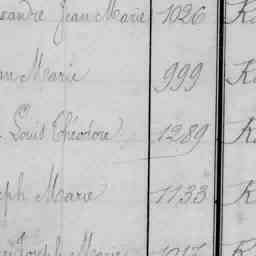 exandre Jean Marie 1026 K
an Marie 999 K
Louis Théodore 1289 K
eph Marie 1133 K
Joseph Marie 1017 K